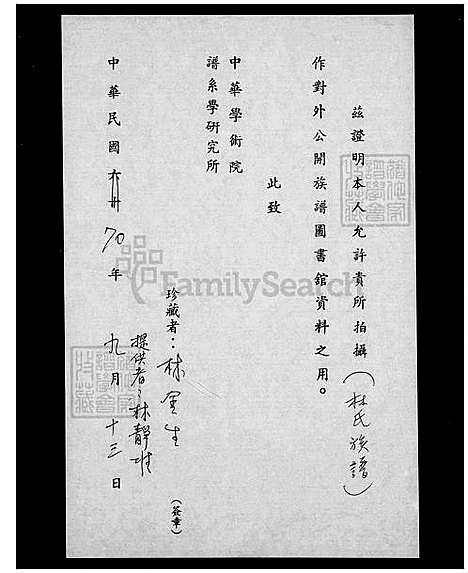 茲證明本人允許貴所拍攝(林氏族譜)
作對外公開族譜圖書館資料之用。
此致
中華學術院
譜系學研究所
珍藏者：林金生
(簽章)
提供者：林靜
中華民國 70年九月十三日
FamilySearch